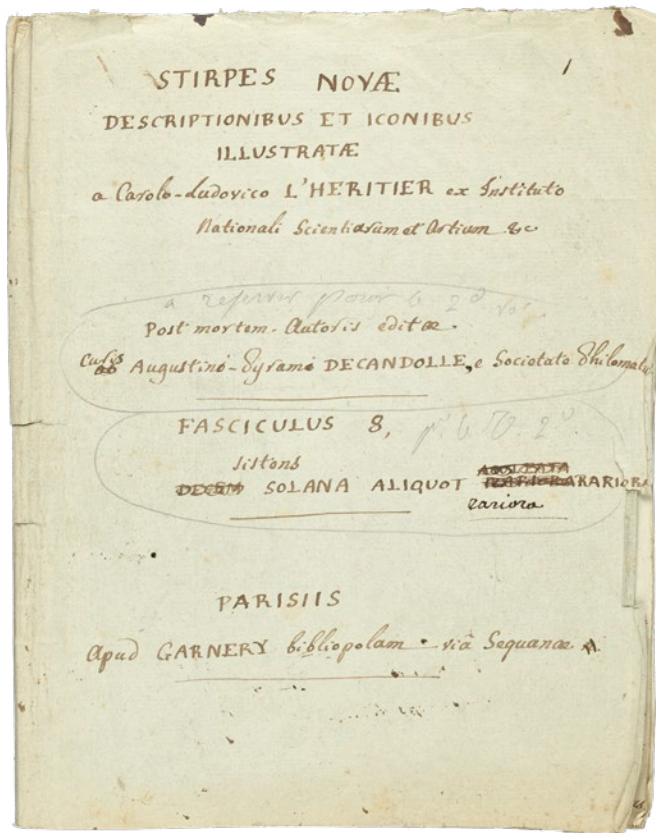 1
STIRPES NOVÆ
DESCRIPTIONIBUS ET ICONIBUS
ILLUSTRATÆ
a Carolo-Ludovico L'HERITIER ex Instituto
Nationali Scientiarum et Artium &c
a reserver pour le 2d vol
Post mortem Autoris editæ.
curis
Augustini-Pyrami DECANDOLLE, e Societate Philomatic
FASCICULUS 8,
sistens
DECEM SOLANA ALIQUOT RARIORA
rariora
PARISIIS
Apud GARNERY bibliopolam viâ Sequanæ